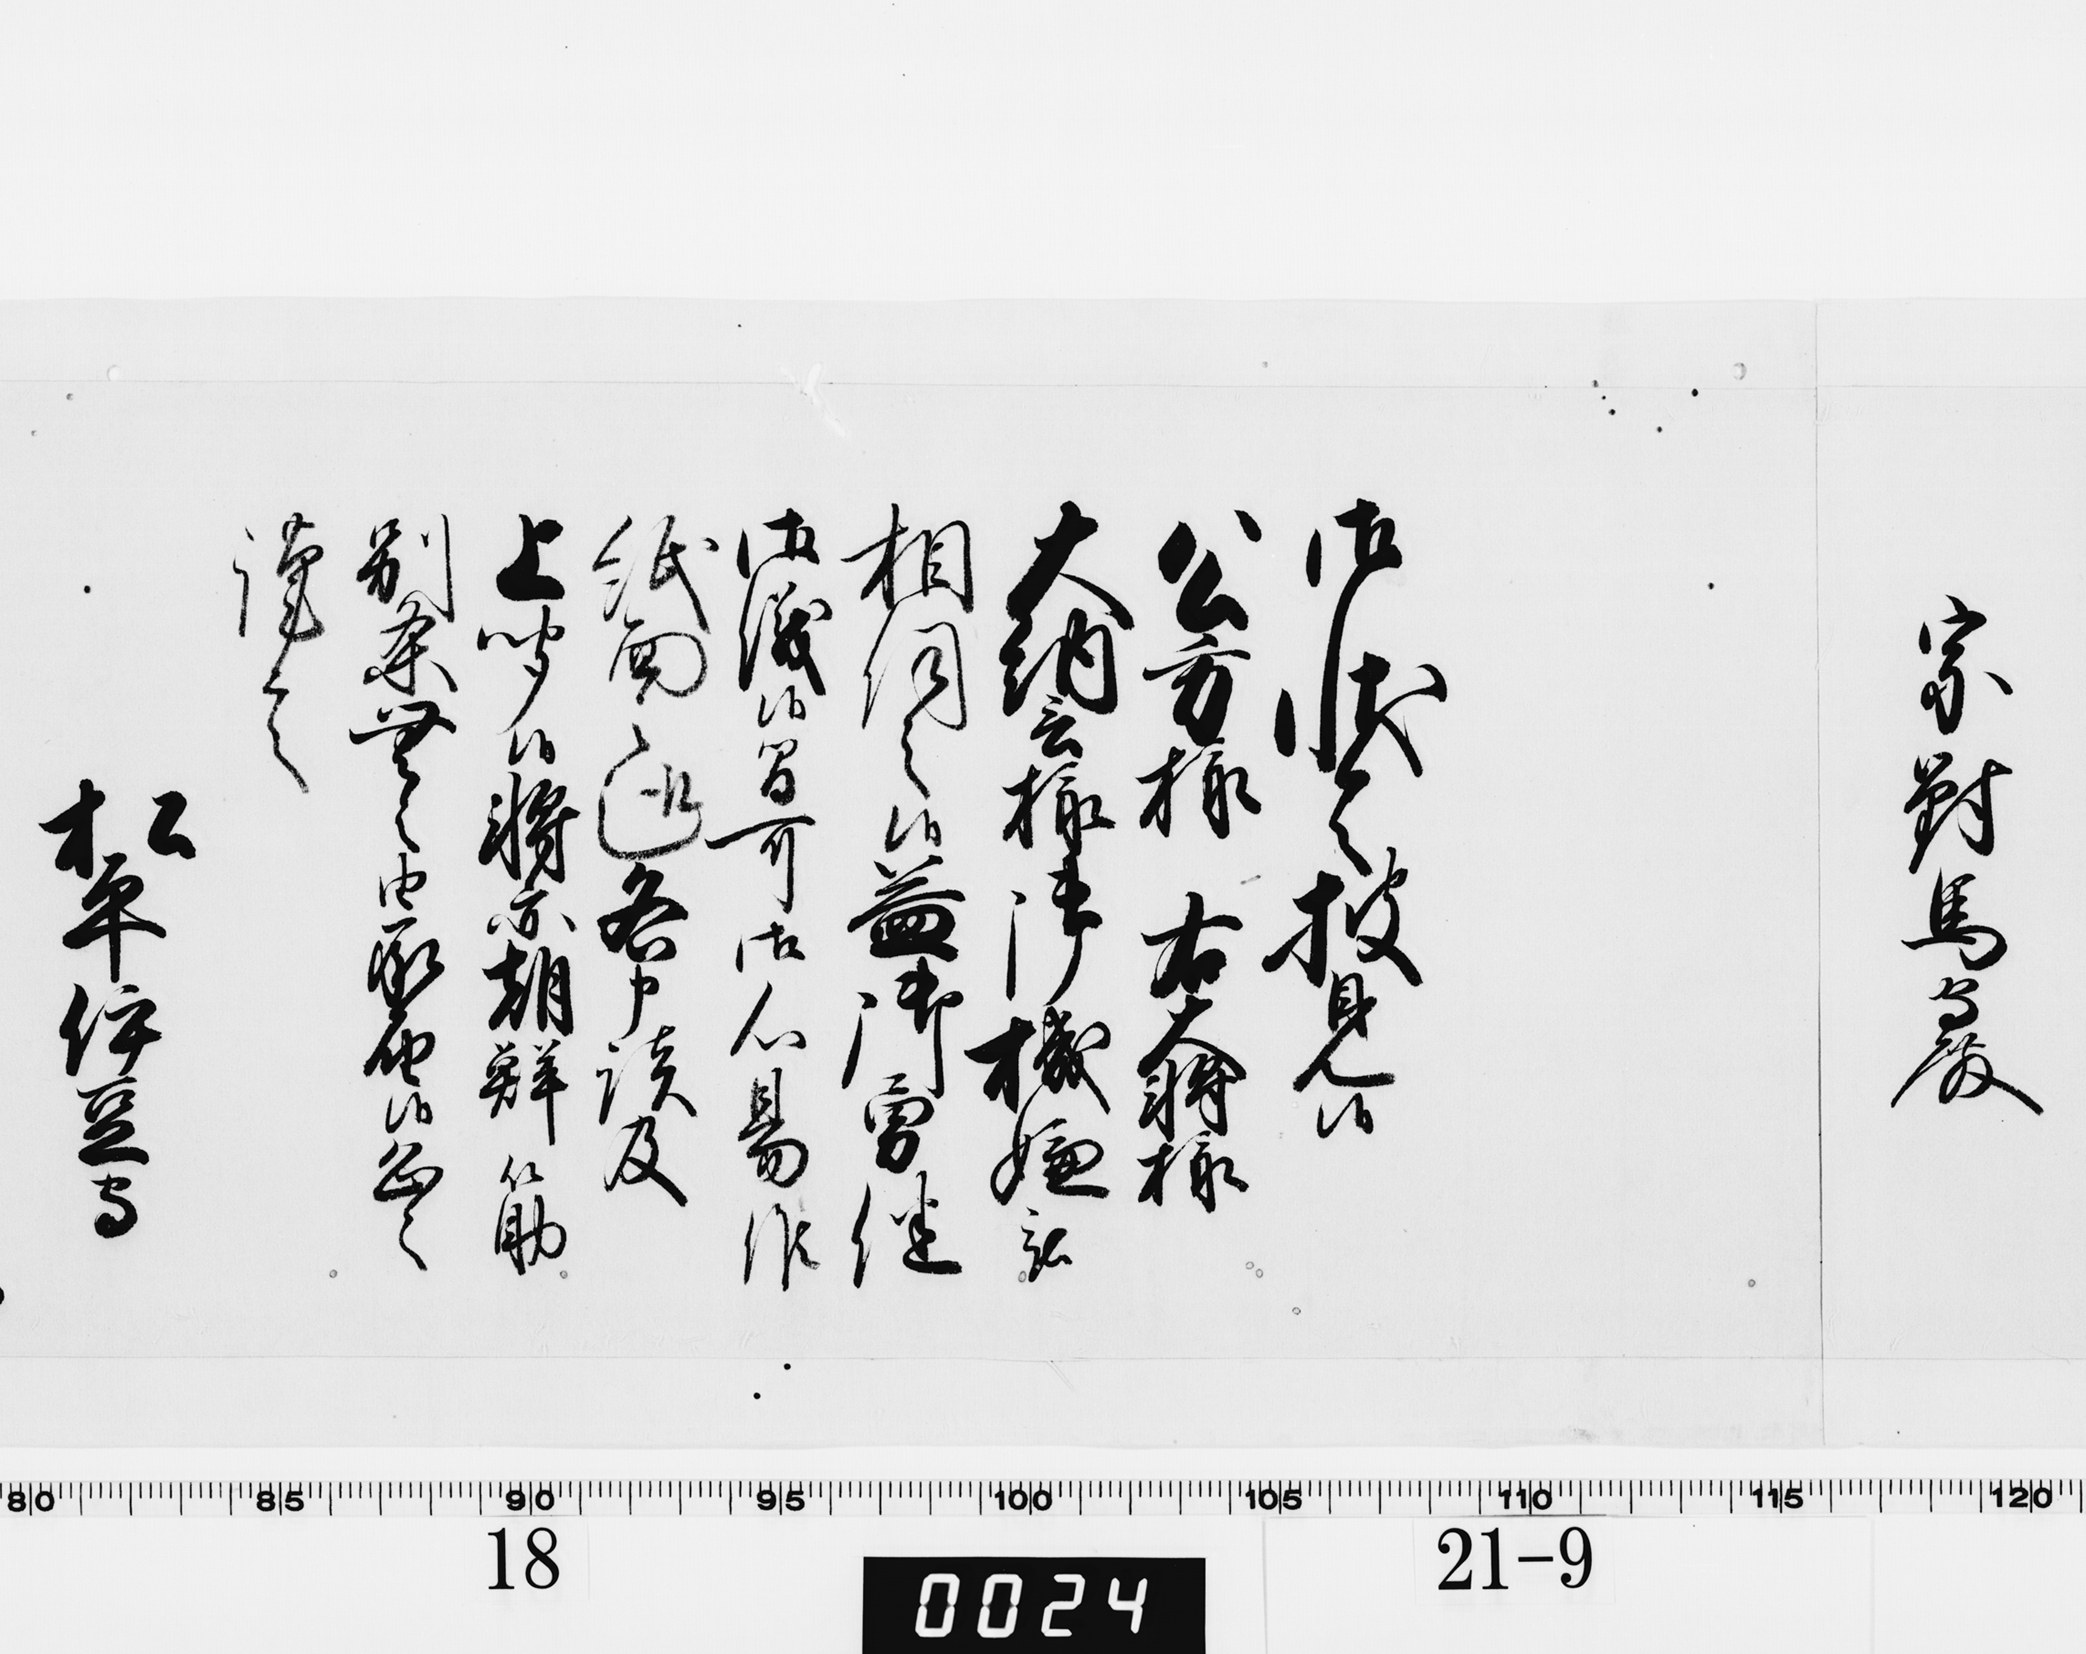 宗對馬守殿
御状令披見候
公方様 右大将様
大納言様御機嫌被
相伺之候益御勇健
御儀候間可御心易候
紙面之趣各申談及
上聞候将亦朝鮮筋
別条無之由承届候恐々
謹言
松平伊豆守
80 85 90 95 100 105 110 115 120
18
0024
21-9